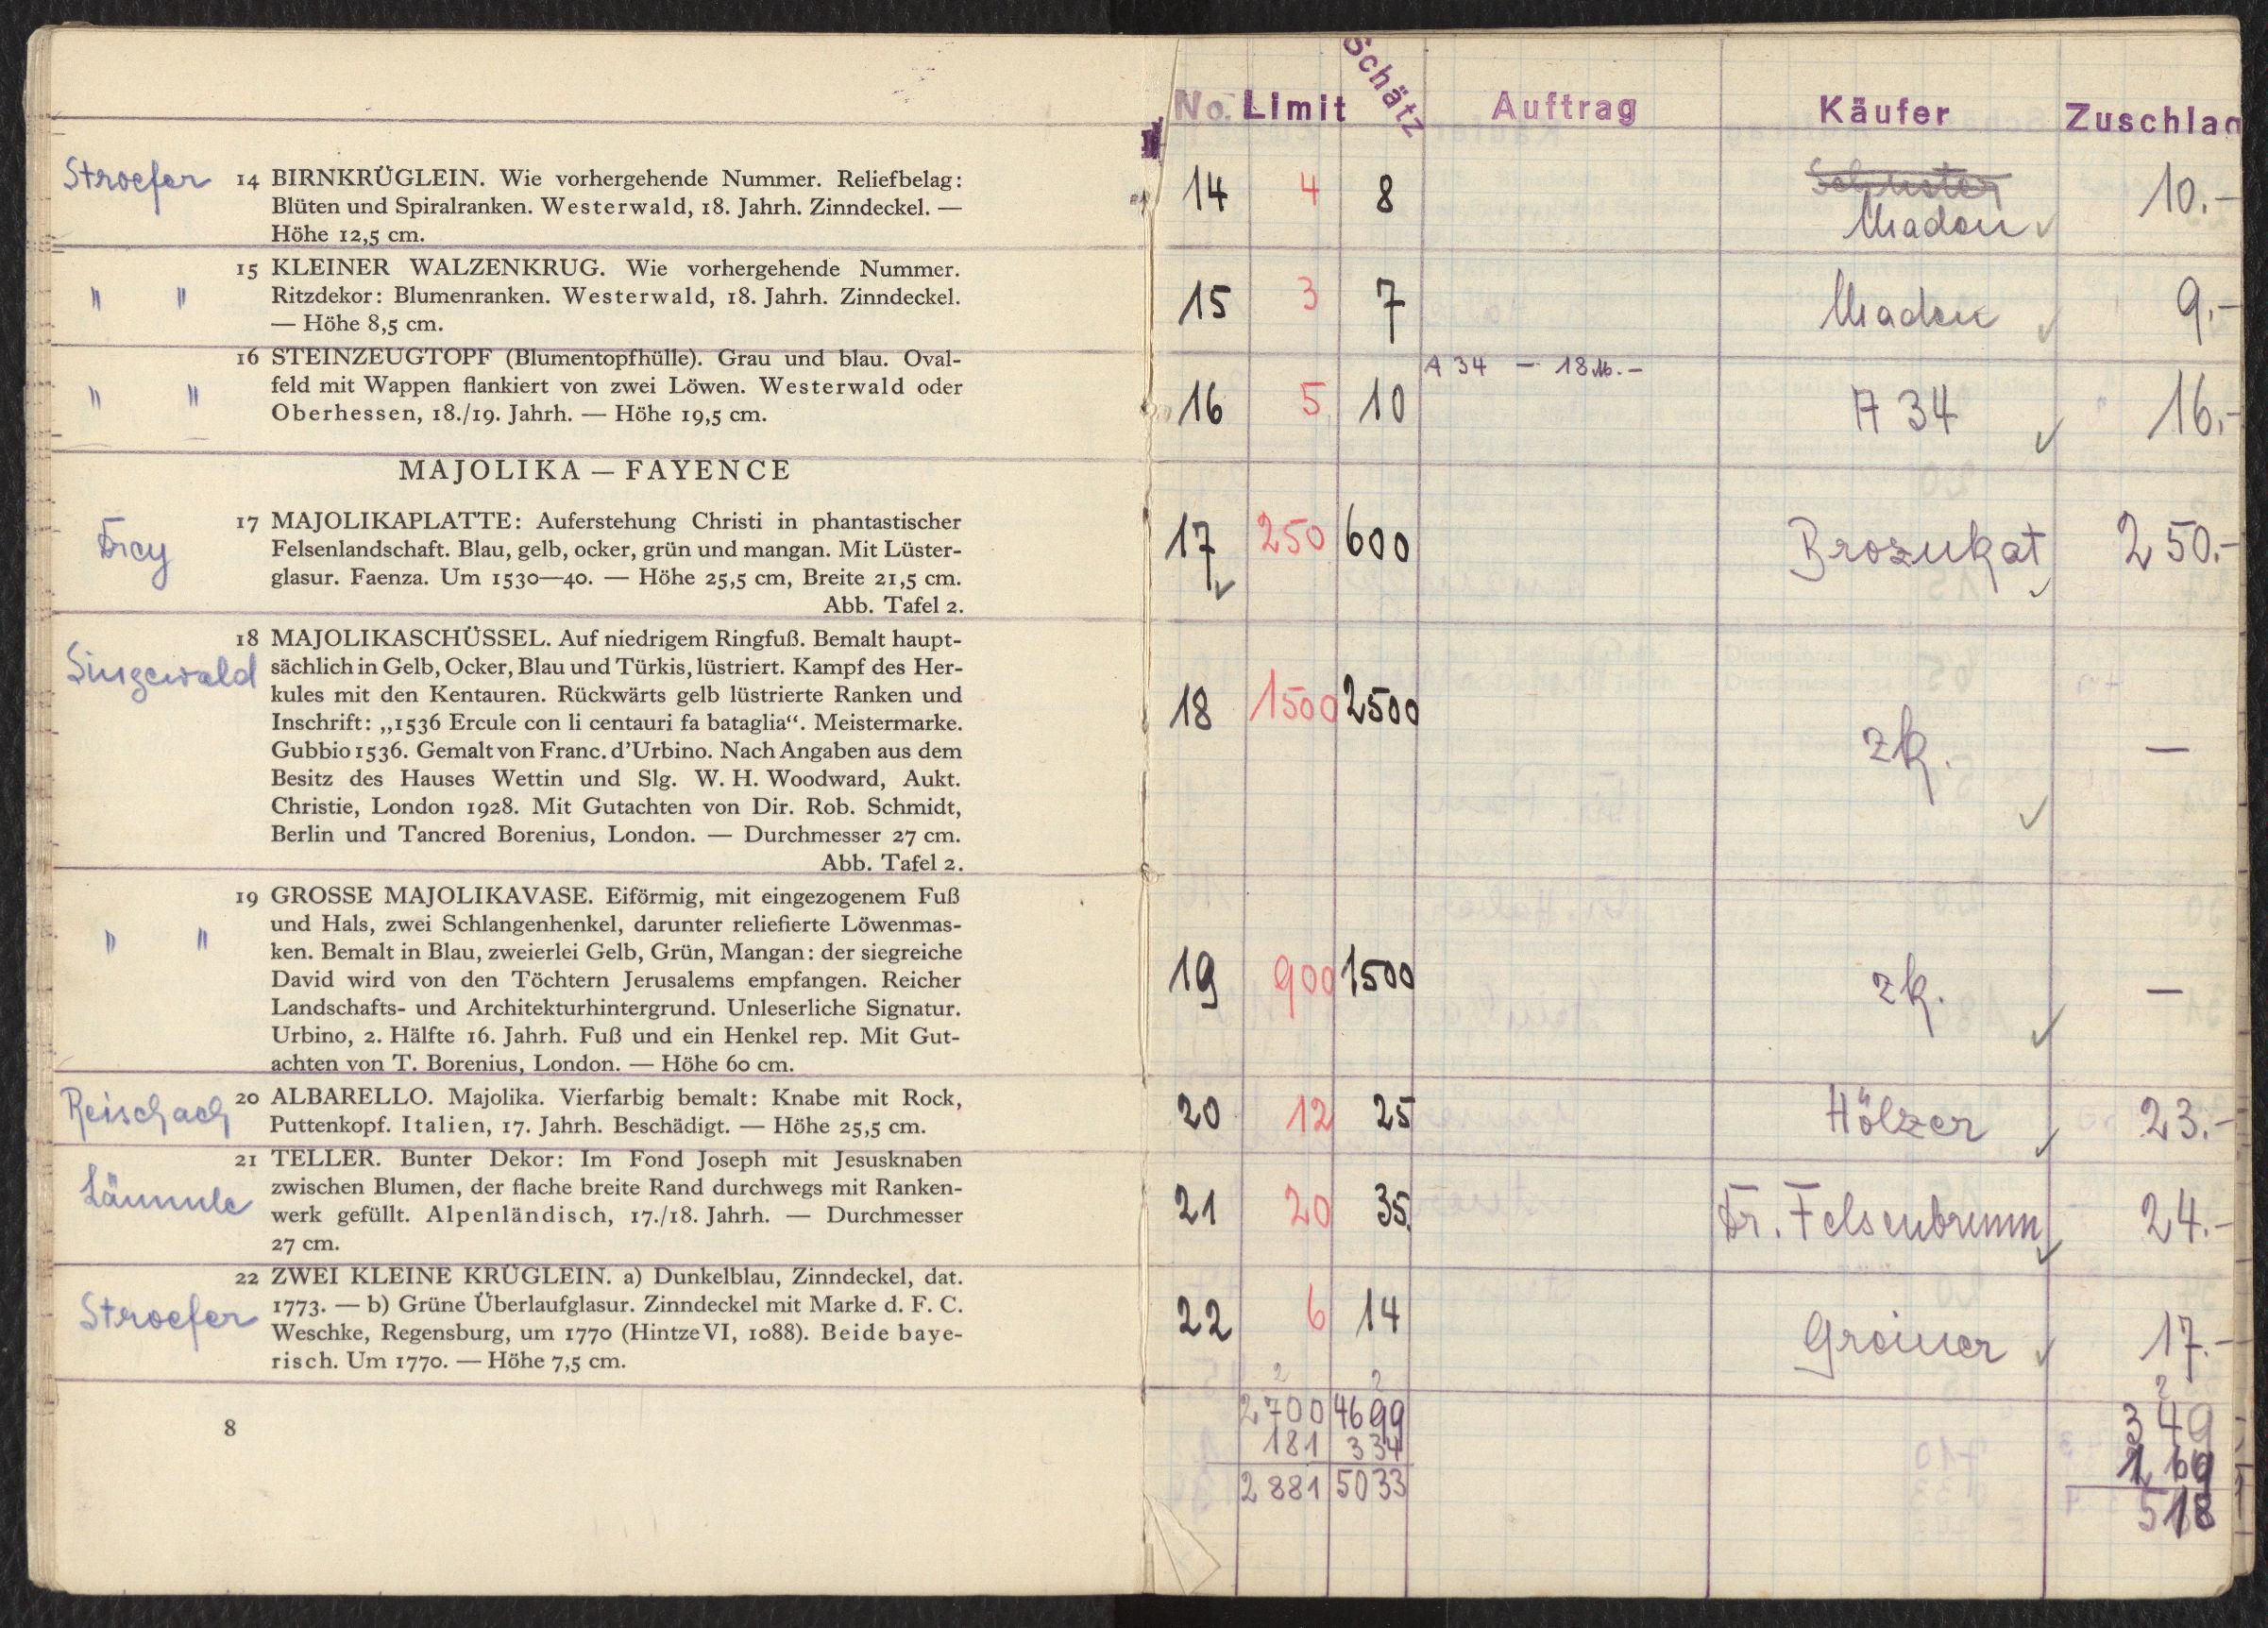 Stroefer
14 BIRNKRÜGLEIN. Wie vorhergehende Nummer. Reliefbelag:
Blüten und Spiralranken. Westerwald, 18. Jahrh. Zinndeckel. —
Höhe 12,5 cm.
" "
15 KLEINER WALZENKRUG. Wie vorhergehende Nummer.
Ritzdekor: Blumenranken. Westerwald, 18. Jahrh. Zinndeckel.
— Höhe 8,5 cm.
" "
16 STEINZEUGTOPF (Blumentopfhülle). Grau und blau. Oval-
feld mit Wappen flankiert von zwei Löwen. Westerwald oder
Oberhessen, 18./19. Jahrh. — Höhe 19,5 cm.
MAJOLIKA — FAYENCE
Frey
17 MAJOLIKAPLATTE: Auferstehung Christi in phantastischer
Felsenlandschaft. Blau, gelb, ocker, grün und mangan. Mit Lüster-
glasur. Faenza. Um 1530—40. — Höhe 25,5 cm, Breite 21,5 cm.
Abb. Tafel 2.
Singewald
18 MAJOLIKASCHÜSSEL. Auf niedrigem Ringfuß. Bemalt haupt-
sächlich in Gelb, Ocker, Blau und Türkis, lüstriert. Kampf des Her-
kules mit den Kentauren. Rückwärts gelb lüstrierte Ranken und
Inschrift: „1536 Ercule con li centauri fa bataglia“. Meistermarke.
Gubbio 1536. Gemalt von Franc. d’Urbino. Nach Angaben aus dem
Besitz des Hauses Wettin und Slg. W. H. Woodward, Aukt.
Christie, London 1928. Mit Gutachten von Dir. Rob. Schmidt,
Berlin und Tancred Borenius, London. — Durchmesser 27 cm.
Abb. Tafel 2.
" "
19 GROSSE MAJOLIKAVASE. Eiförmig, mit eingezogenem Fuß
und Hals, zwei Schlangenhenkel, darunter reliefierte Löwenmas-
ken. Bemalt in Blau, zweierlei Gelb, Grün, Mangan: der siegreiche
David wird von den Töchtern Jerusalems empfangen. Reicher
Landschafts- und Architekturhintergrund. Unleserliche Signatur.
Urbino, 2. Hälfte 16. Jahrh. Fuß und ein Henkel rep. Mit Gut-
achten von T. Borenius, London. — Höhe 60 cm.
Reischach
20 ALBARELLO. Majolika. Vierfarbig bemalt: Knabe mit Rock,
Puttenkopf. Italien, 17. Jahrh. Beschädigt. — Höhe 25,5 cm.
Lämmle
21 TELLER. Bunter Dekor: Im Fond Joseph mit Jesusknaben
zwischen Blumen, der flache breite Rand durchwegs mit Ranken-
werk gefüllt. Alpenländisch, 17./18. Jahrh. — Durchmesser
27 cm.
Stroefer
22 ZWEI KLEINE KRÜGLEIN. a) Dunkelblau, Zinndeckel, dat.
1773. — b) Grüne Überlaufglasur. Zinndeckel mit Marke d. F. C.
Weschke, Regensburg, um 1770 (Hintze VI, 1088). Beide baye-
risch. Um 1770. — Höhe 7,5 cm.
8
No. Limit Schätz Auftrag Käufer Zuschlag
Schuster
14 4 8 Madou 10.-
15 3 7 Madou 9.-
A 34 — 18 M.-
16 5 10 A 34 16.-
17 250 600 Brozukat 250.-
18 1500 2500 zk. —
19 900 1500 zk. —
20 12 25 Hölzer 23.-
21 20 35 Dr. Felsenbrunn 24.-
22 6 14 Greiner 17.-
2 2 2
2700 4699 349
181 334 169
2881 5033 518